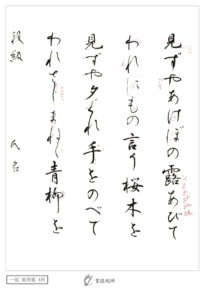 見ずやあけぼの露あびて
われにもの言う桜木を
見ずや夕ぐれ手をのべて
われさしまねく青柳を
段級 氏名
一般 実用書 4月
書道香瞬